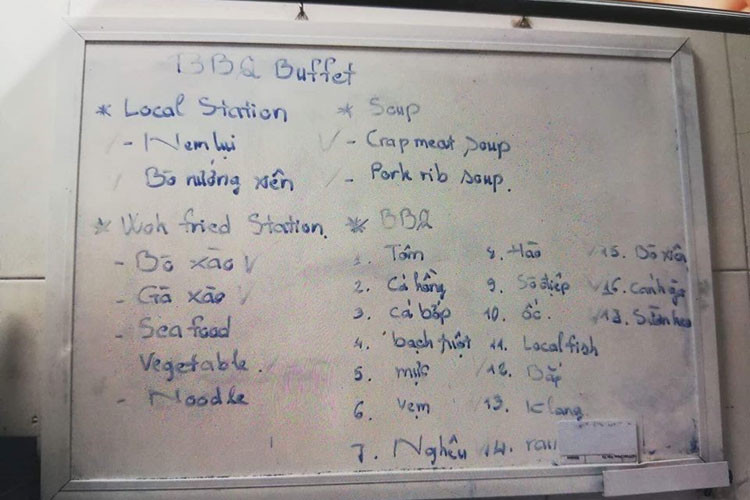 BBQ Buffet
* Local Station
- Nem lụi
Bò nướng xiên
* Soup
- Crapmeat soup
- Pork rib soup.
* Woh fried Station.
- Bò xào V
- Gà xào V
- Seafood
Vegetable.
- Noodle
* BBQ
1. Tôm
2. Cá hồng
3. cá bớp
4. bạch tuột
5. mực
6. Vẹm
7. Nghêu
8. Hào
9. Sò điệp
10. ốc.
11. Local fish
12. Bắp
13. K lang
14.
15. Bò xiên
16. Cánh gà
17. Sườn heo